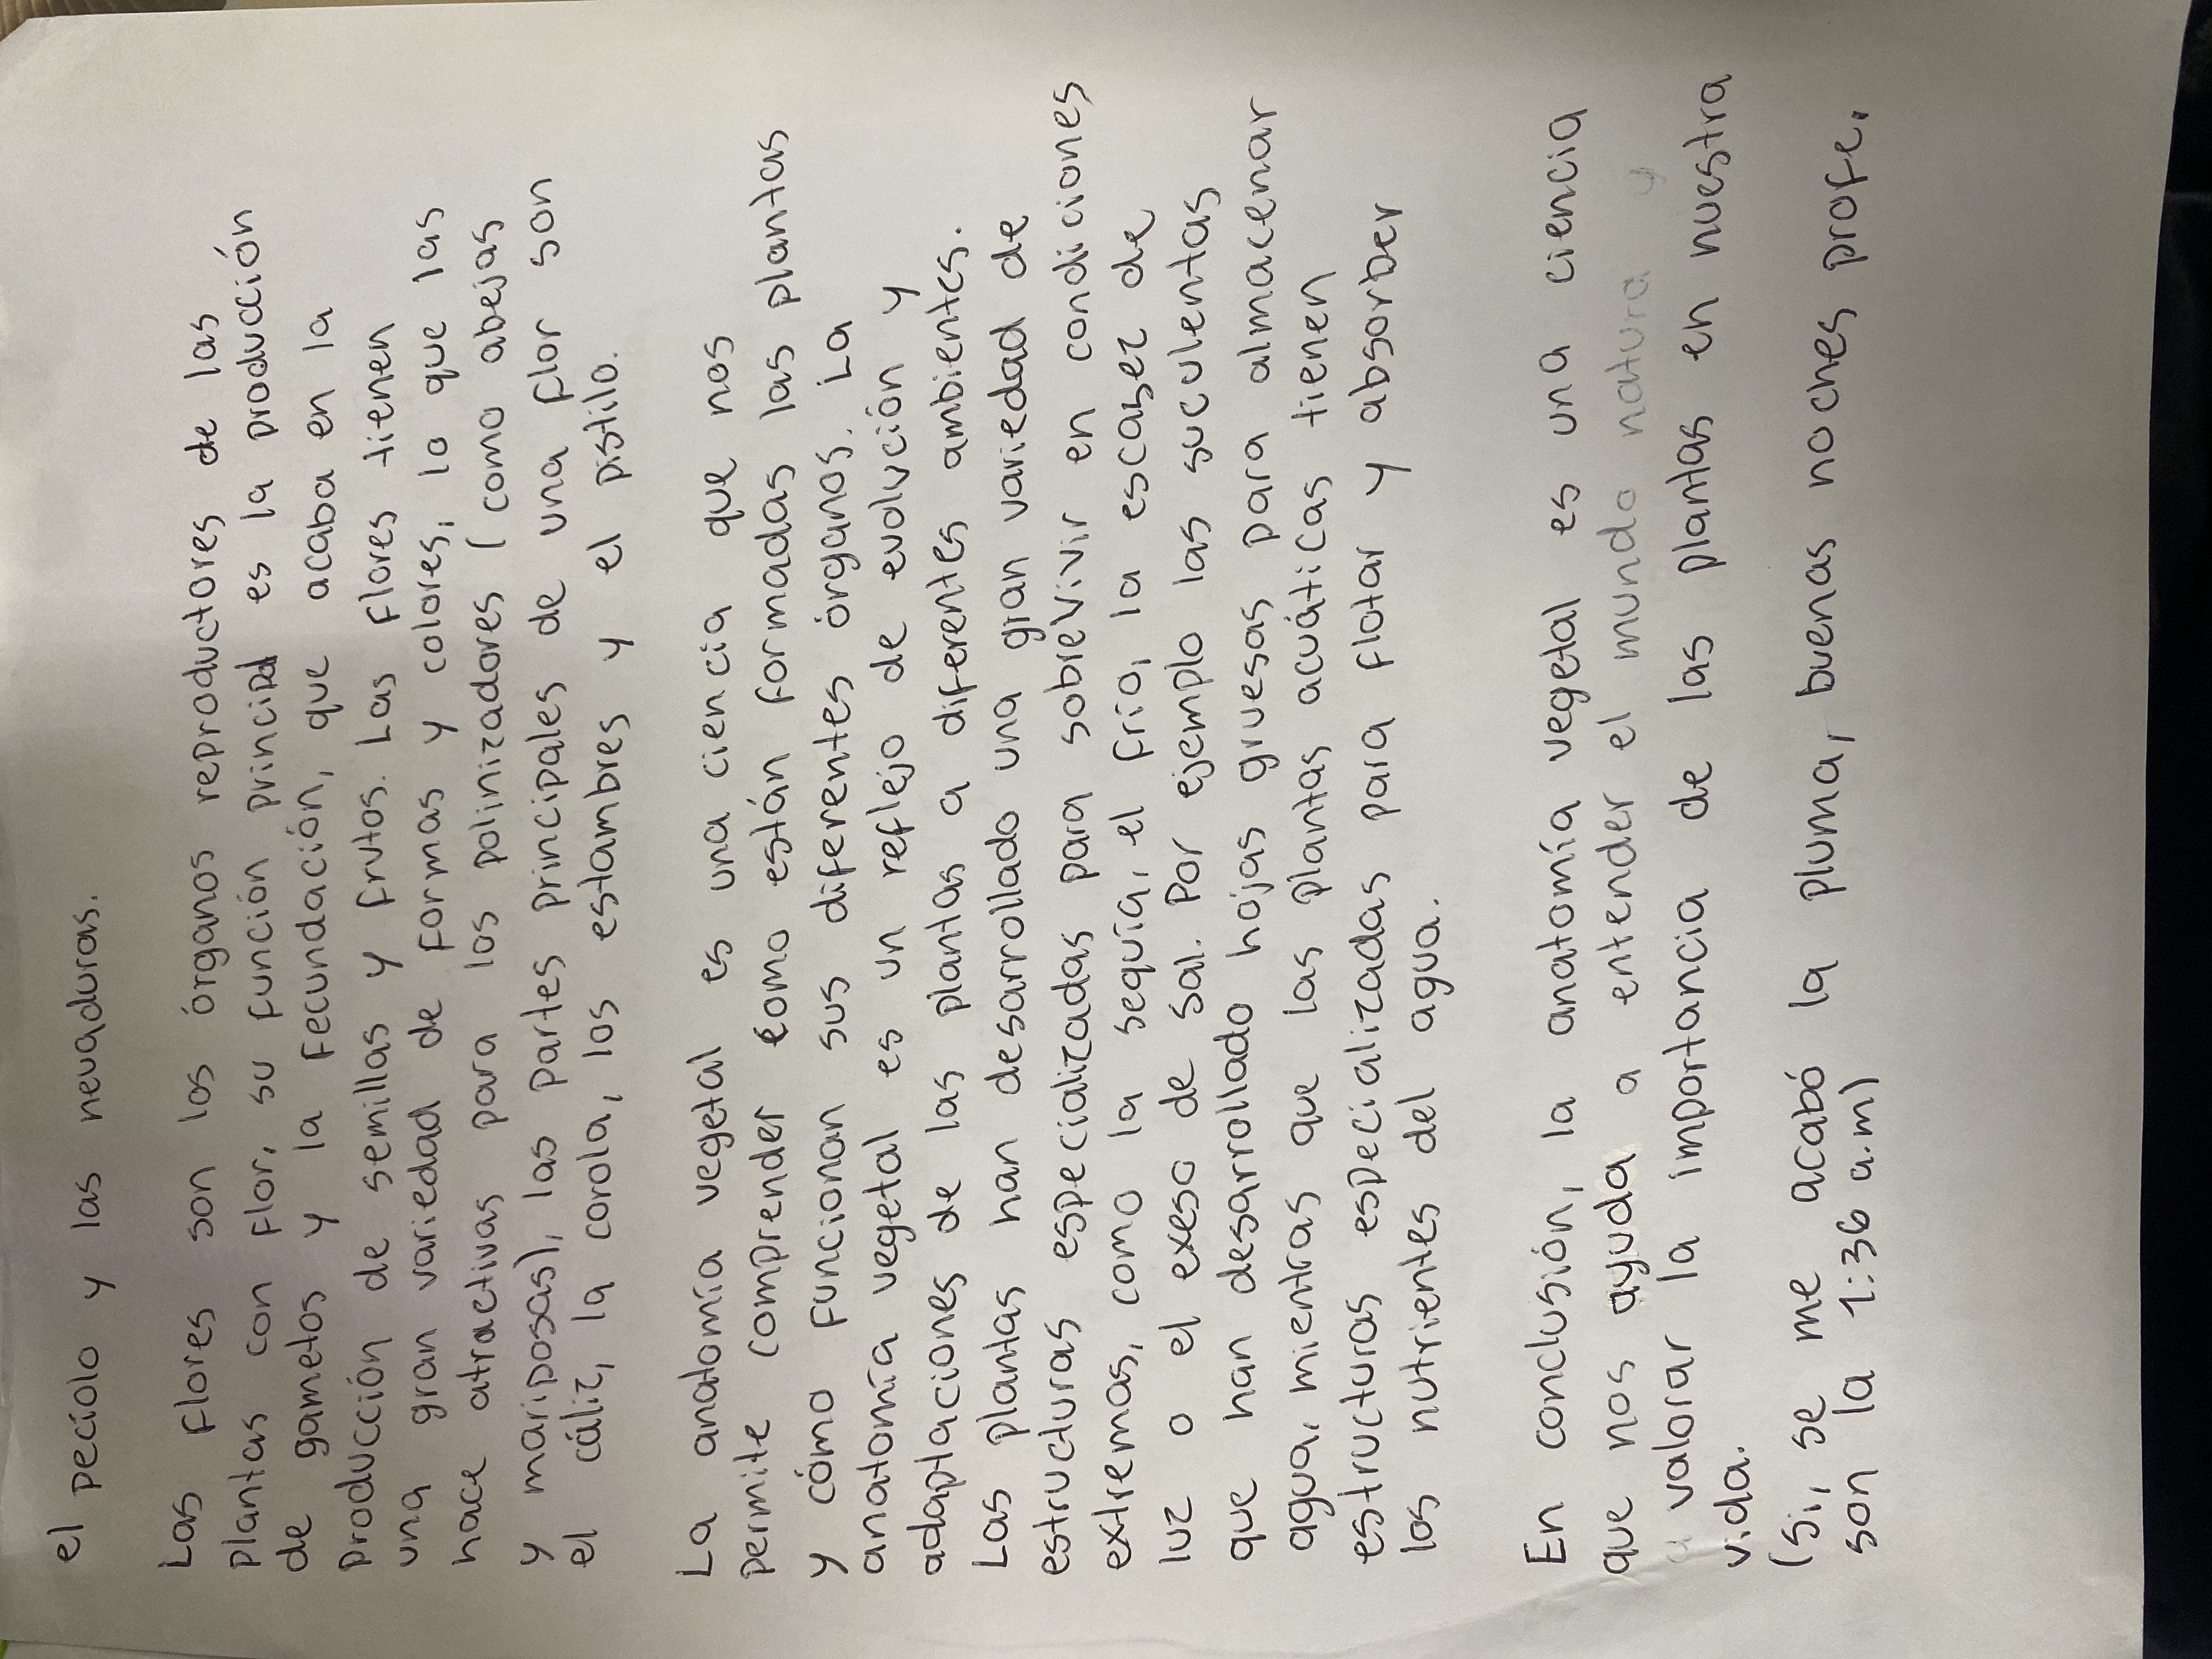 el pecíolo y las nevaduras.
Las flores son los órganos reproductores de las
plantas con flor, su función principal es la producción
de gametos y la fecundación, que acaba en la
producción de semillas y frutos. Las flores tienen
una gran variedad de formas y colores, lo que las
hace atractivas para los polinizadores (como abejas
y mariposas), las partes principales de una flor son
el cáliz, la corola, los estambres y el pistilo.
La anatomía vegetal es una ciencia que nos
permite comprender como están formadas las plantas
y cómo funcionan sus diferentes órganos. La
anatomía vegetal es un reflejo de evolución y
adaptaciones de las plantas a diferentes ambientes.
Las plantas han desarrollado una gran variedad de
estructuras especializadas para sobrevivir en condiciones
extremas, como la sequía, el frío, la escasez de
luz o el exeso de sal. Por ejemplo las suculentas
que han desarrollado hojas gruesas para almacenar
agua, mientras que las plantas acuáticas tienen
estructuras especializadas para flotar y absorber
los nutrientes del agua.
En conclusión, la anatomía vegetal es una ciencia
que nos ayuda a entender el mundo natura y
a valorar la importancia de las plantas en nuestra
vida.
(si, se me acabó la pluma, buenas noches profe,
son la 1:36 a.m)